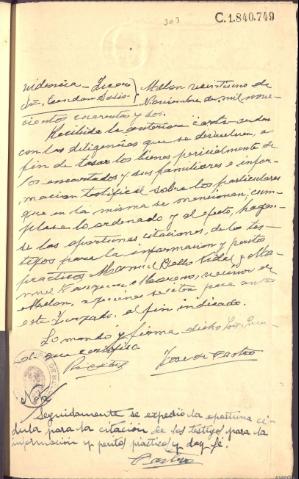 303
C.1.840.749
videncia Juez
Sr. Candan Solis
Melon veintiuno de
Noviembre de mil nove
cientos cuarenta y dos.
Recibida la anterior carta orden
con las diligencias que se devuelven, a
fin de tasar los bienes pericialmente de
los encartados y sus familiares e infor
macion testifical sobre los particulares
que en la misma se mencionan, cum
plase lo ordenado y al efecto, hagan
se las oportunas citaciones, de los tes
tigos para la informacion y peritos
practicos Manuel Vidal y Ma
nuel Moreno, vecinos de
Melon, a quienes se cita para ante
este Juzgado, al fin indicado.
Lo mando y firma dicho Sr. Juez
de que certifico
Jose de Castro
Nota
Seguidamente se expedio la oportuna ce
dula para la citacion de los testigos para la
informacion y peritos practicos y doy fe.
Castro